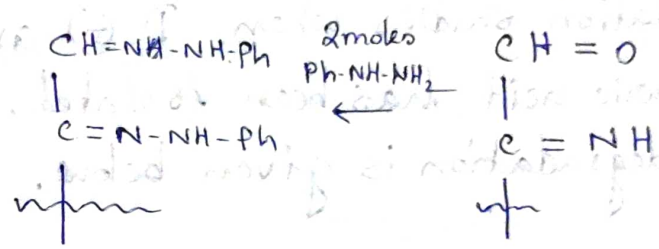 CH=NH-NH-Ph
C=N-NH-Ph
2moles
Ph-NH-NH₂
CH=O
C=NH